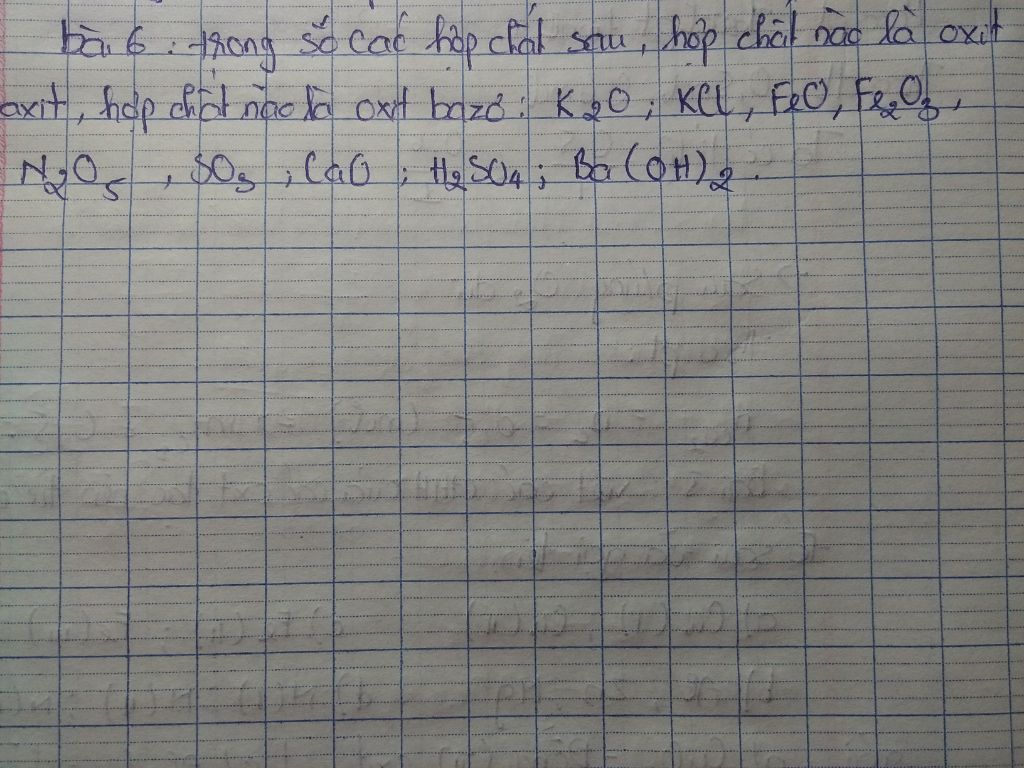 bài 6 : trong số các hợp chất sau, hợp chất nào là oxit
axit, hợp chất nào là oxit bazơ : K2O ; KCl, FeO, Fe2O3,
N2O5 , SO3 ; CaO ; H2SO4 ; Ba(OH)2.